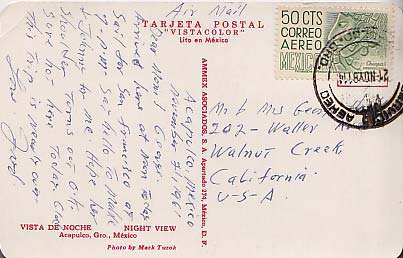 Air Mail
TARJETA POSTAL
"VISTACOLOR"
Lito en México
50 CTS
CORREO
AEREO
MEXICO
Chiapas
21 NOV 61
AEREO
Acapulco, Mexico
November 21, 1961
Dear Mom & George
Arrived here at Noon Today
Sail for San Francisco at
Say Hello to
Johnny for me. Hope
Weather Turns out O.K.
Sure hot here Today. Guess
This trip is nearly over.
Love
Fred
Mr & Mrs George
202 - Waller Ave
Walnut Creek,
California
U-S-A
AMMEX ASOCIADOS, S. A. Apartado 274, México, D. F.
VISTA DE NOCHE NIGHT VIEW
Acapulco, Gro., México
Photo by Mark Turok